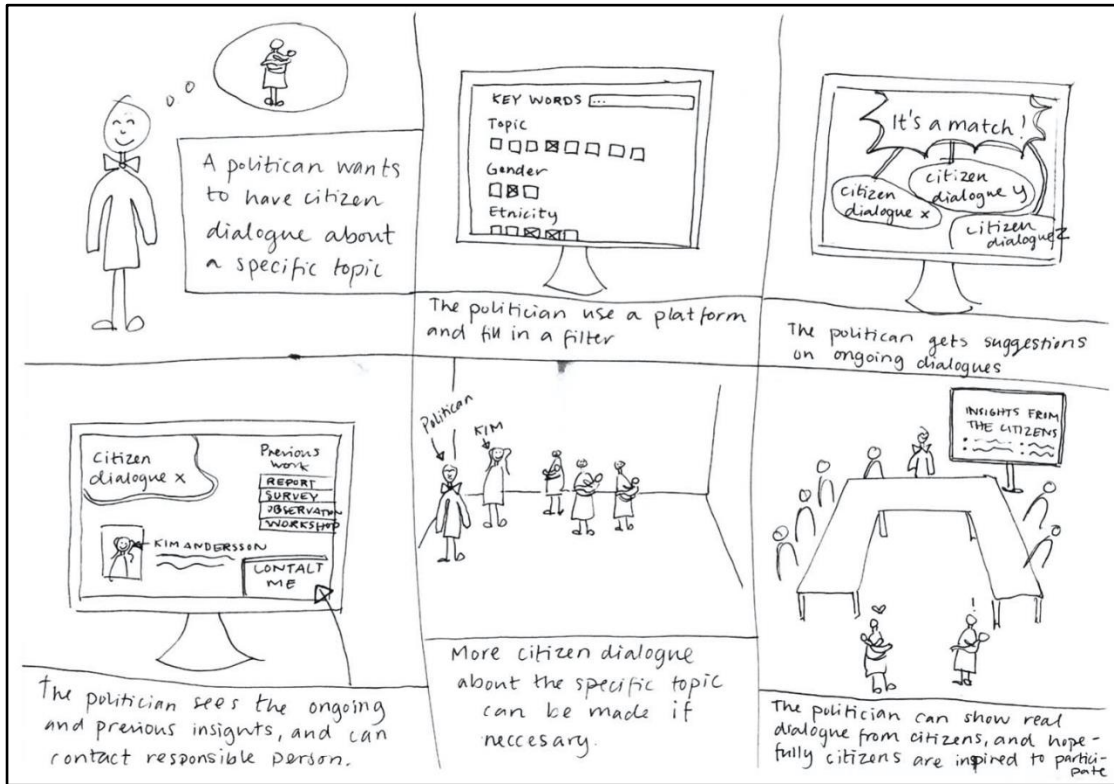 A politican wants
to have citizen
dialogue about
a specific topic
KEY WORDS ...
Topic
Gender
Etnicity
The politician use a platform
and fill in a filter
It's a match!
citizen
dialogue x
citizen
dialogue y
citizen
dialogue z
The politican gets suggestions
on ongoing dialogues
Citizen
dialogue x
Previous
work
REPORT
SURVEY
OBSERVATION
WORKSHOP
KIM ANDERSSON
CONTALT
ME
The politician sees the ongoing
and previous insights, and can
contact responsible person.
Politican
KIM
More citizen dialogue
about the specific topic
can be made if
neccesary.
INSIGHTS FROM
THE CITIZENS
The politician can show real
dialogue from citizens, and hope-
fully citizens are inspired to partici-
pate